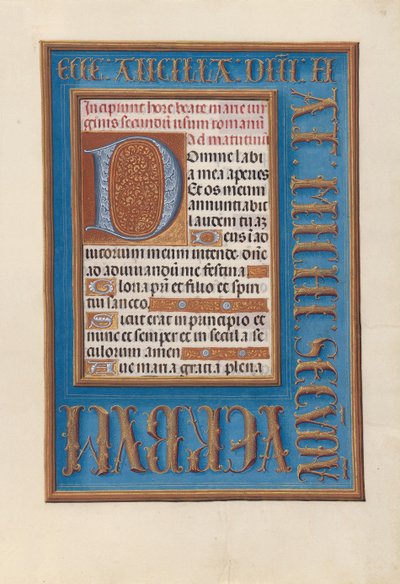 ECCE · ANCILLA · DNI · FI
AT · MICHI · SECUNDU
VERBUM
Incipiunt hore beate marie vir
ginis secundu usum romanu
Ad matutinu
Domine labi
a mea aperies
Et os meum
annuntiabit
laudem tuaz
Deus i ad
iutorium meum intende · dne
ad adiuvandu me festina
Gloria pri et filio et spiri
tui sancto
Sicut erat in principio et
nunc et semper et in secula se
culorum amen
Ave maria gratia plena